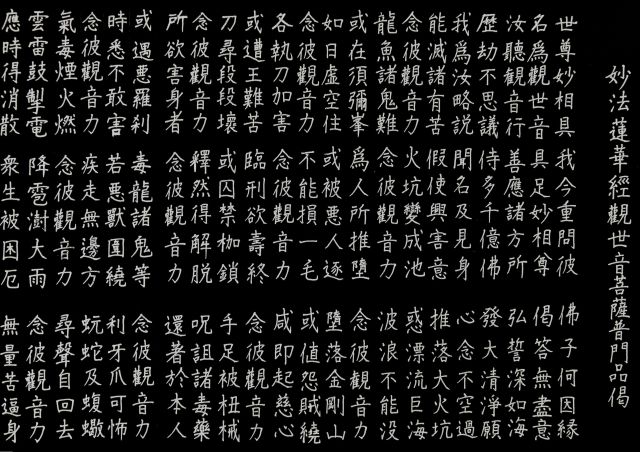 妙法蓮華經觀世音菩薩普門品偈
世尊妙相具 我今重問彼 佛子何因緣
名爲觀世音 具足妙相尊 偈答無盡意
汝聽観音行 善應諸方所 弘誓深如海
歴劫不思議 侍多千億佛 發大清淨願
我爲汝略説 聞名及見身 心念不空過
能滅諸有苦 假使興害意 推落大火坑
念彼觀音力 火坑變成池 惑漂流巨海
龍魚諸鬼難 念彼觀音力 波浪不能没
或在須彌峯 爲人所推墮 念彼觀音力
如日虚空住 或被悪人逐 墮落金剛山
念彼觀音力 不能損一毛 或值怨賊繞
各執刀加害 念彼觀音力 咸即起慈心
或遭王難苦 臨刑欲壽終 念彼觀音力
刀尋段段壞 或囚禁枷鎖 手足被杻械
念彼觀音力 釋然得解脱 呪詛諸毒藥
所欲害身者 念彼觀音力 還著於本人
或遇悪羅刹 毒龍諸鬼等 念彼觀音力
時悉不敢害 若悪獸圍繞 利牙爪可怖
念彼觀音力 疾走無邊方 蚖蛇及蝮蠍
氣毒煙火燃 念彼觀音力 尋聲自回去
雲雷鼓掣電 降雹澍大雨 念彼觀音力
應時得消散 衆生被困厄 無量苦逼身